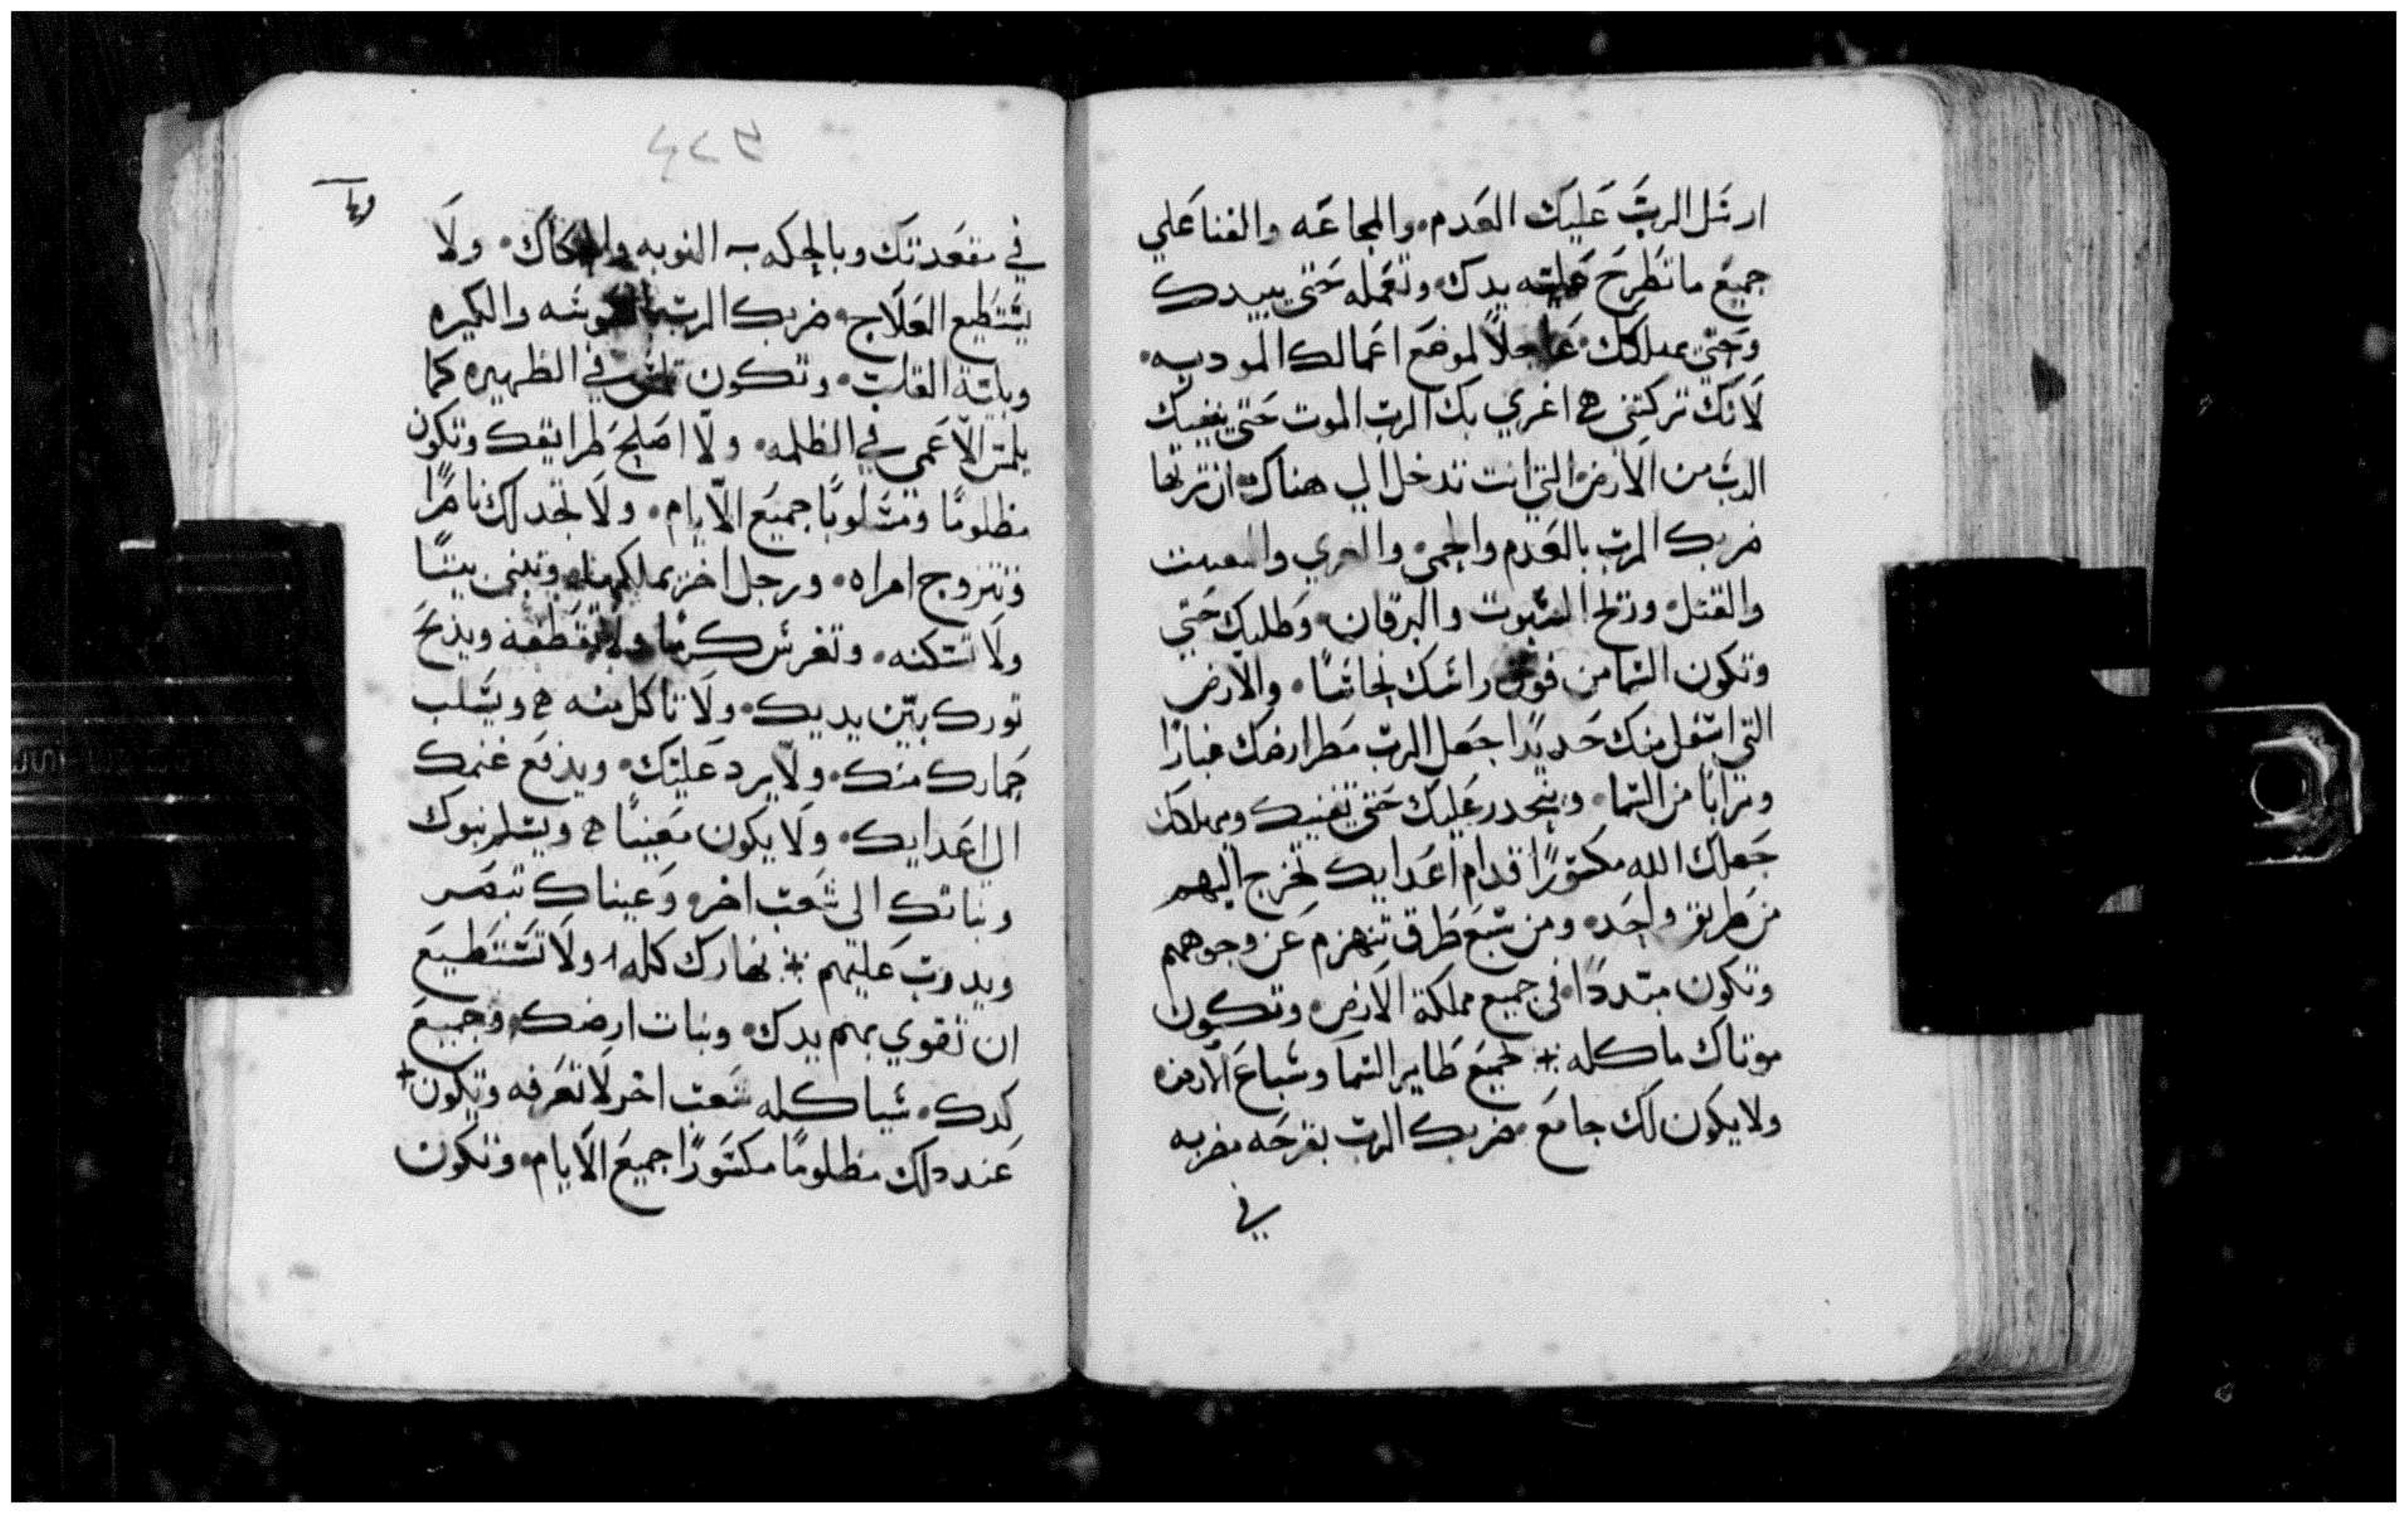 ارسل الرب عليك العدم والمجاعه والفنا علي
جميع ما تطرح عليه يدك وتعمله حتي يبيدك
وحتي يهلكك عاجلاً لموضع اعمالك الموديه
لانك تركتني اغري بك الرب الموت حتي يفنيك
الرب من الارض التي انت تدخل الي هناك ان ترثها
ضربك الرب بالعدم والحمي والعري
والقتل وريح السموت واليرقان وطلبك حتي
وتكون السما من فوق راسك نحاسًا والارض
التي اسفل منك حديدًا جعل الرب مطر ارضك غبارًا
وترابًا من السما وينحدر عليك حتي يفنيك ويهلكك
جعلك الله مكسورًا قدام اعدايك تخرج اليهم
من طريق واحده ومن سبع طرق تنهزم عن وجوههم
وتكون مبددًا في جميع مملكة الارض وتكون
موتاك ماكله لجميع طاير السما وسباع الارض
ولا يكون لك جامع ضربك الرب بقرحه مضربه
في
٤٢٣
في مقعدتك وبالحكه النوبه ولا
يستطيع العلاج ضربك الرب والكيره
وبلتة القلب وتكون في الظهيره كما
يلمس الاعمي في الظلمه ولا اصلح طرايقك وتكون
مظلومًا ومسلوبًا جميع الايام ولا تجد لك ناصرًا
وتتزوج امراه ورجل اخر يملكها وتبني بيتًا
ولا تسكنه وتغرس كرمًا ولا تقطفه ويذبح
تورك بين يديك ولا تاكل منه ويسلب
حمارك منك ولا يرد عليك ويدفع غنمك
الي اعدايك ولا يكون معينًا ويسلم بنوك
وبناتك الي شعب اخر وعيناك تبصر
ويدوب عليهم نهارك كله ولا تستطيع
ان تقوي بهم يدك ونبات ارضك وجميع
كدك شيا كله شعب اخر لا تعرفه وتكون
عند دلك مظلومًا مكسورًا جميع الايام وتكون